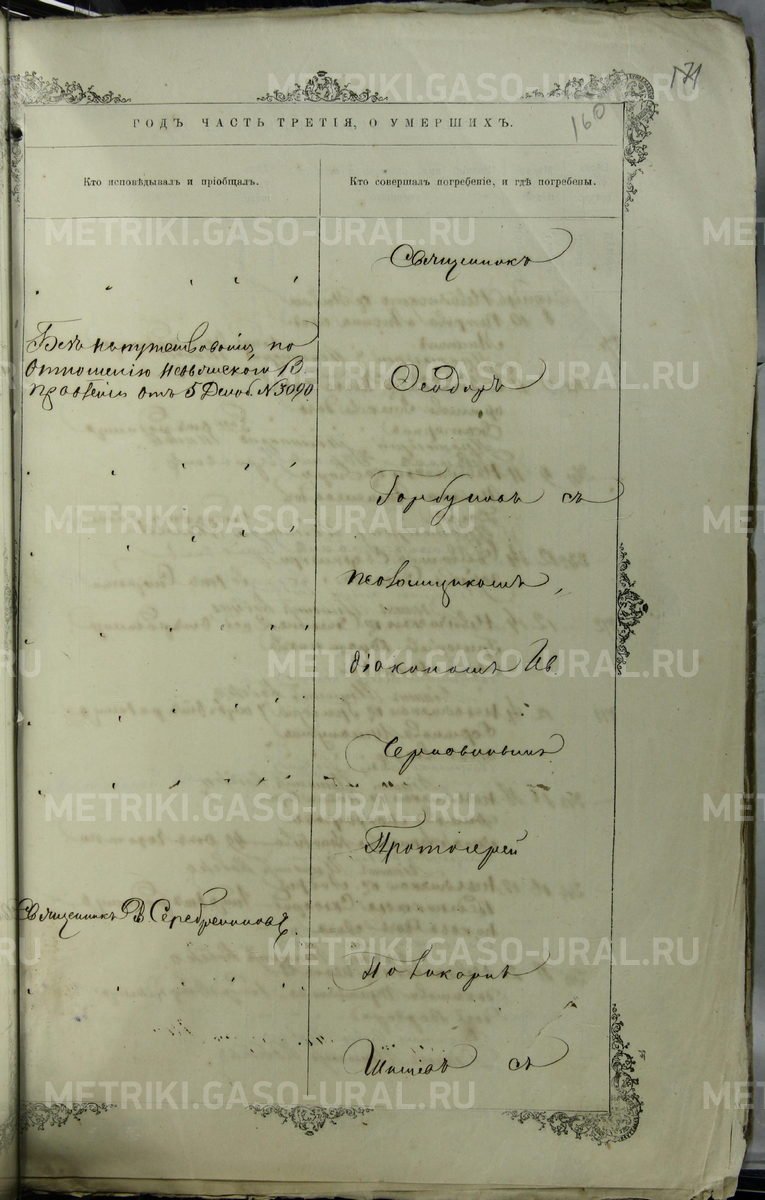 171
160
ГОДЪ ЧАСТЬ ТРЕТІЯ, О УМЕРШИХЪ.
Кто исповѣдывалъ и пріобщалъ.
Кто совершалъ погребеніе, и гдѣ погребены.
Священникъ
Безъ напутствованія по
отношенію Невьянскаго В.
Правленія отъ 5 Декаб. № 3090.
Ѳеодоръ
Горбуновъ съ
псаломщикомъ,
діакономъ Ив.
Протоіерей
Священникъ В Серебренниковъ.
съ
METRIKI.GASO-URAL.RU